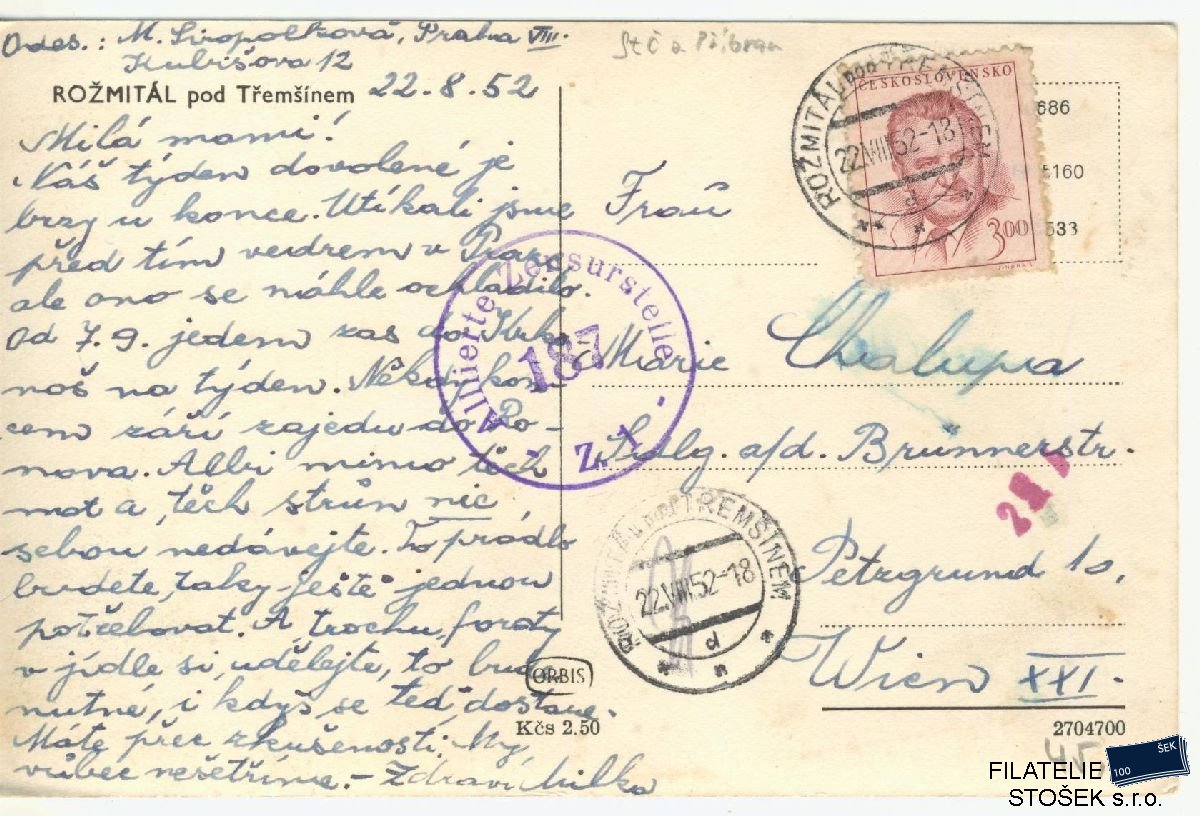 Odes.: M. Siropolková, Praha VIII.
Kubišova 12
ROŽMITÁL pod Třemšínem 22.8.52
Milá mami!
Náš týden dovolené je
brzy u konce. Utíkali jsme
před tím vedrem v Praze
ale ono se náhle ochladilo.
Od 7.9. jedem zas do Krko
noš na týden. Někdy kon
cem září zajedu do Ro-
nova. Albi mimo těch
mot a těch strun nic
sebou nedávejte. To prádlo
budete taky ještě jednou
potřebovat. A trochu foroty
v jídle si udělejte, to bude
nutné, i když se teď dostane.
Máte přec zkušenosti. My
vůbec nešetříme. - Zdraví Milka
StČ a Příbram
ROŽMITÁL POD TŘEMŠÍNEM
22.VIII.52-18
d
ČESKOSLOVENSKO
3.00
686
5160
533
Frau
Marie Chalupa
Sdlg. a/d. Brunnerstr.
Petzgrund 10,
Wien XXI.
Alliierte Zensurstelle
187
Z. 1
ROŽMITÁL POD TŘEMŠÍNEM
22.VIII.52-18
d
ORBIS
Kčs 2.50
2704700
45,
100 ŠEK
FILATELIE
STOŠEK s.r.o.